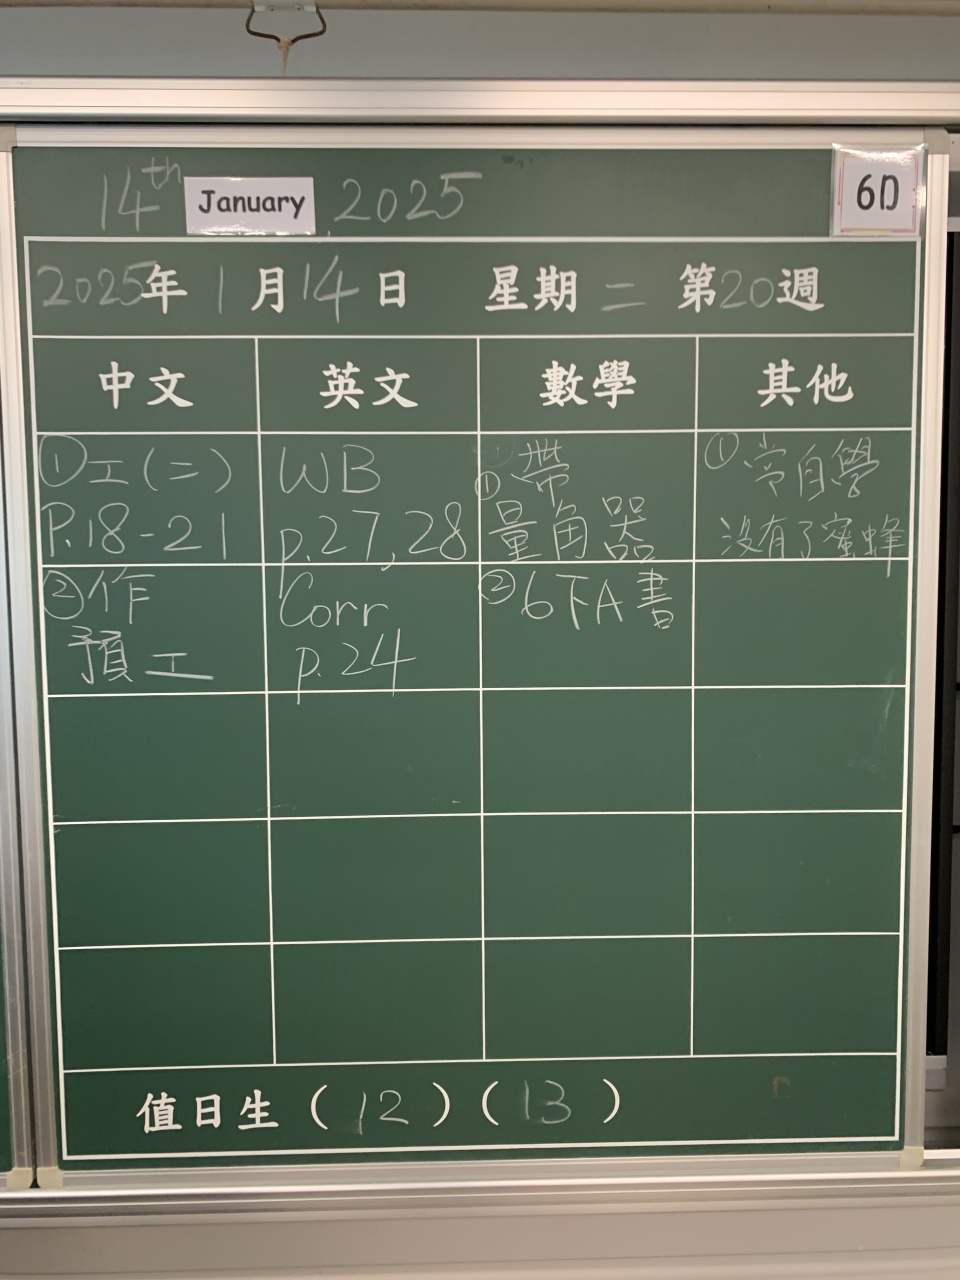 14th January, 2025
6D
2025年1月14日 星期二 第20週
中文 英文 數學 其他
①工(二)
P.18-21
WB
p.27,28
①帶
量角器
①常自學
没有了蜜蜂
②作
預工
Corr
p.24
②6下A書
值日生(12)(13)